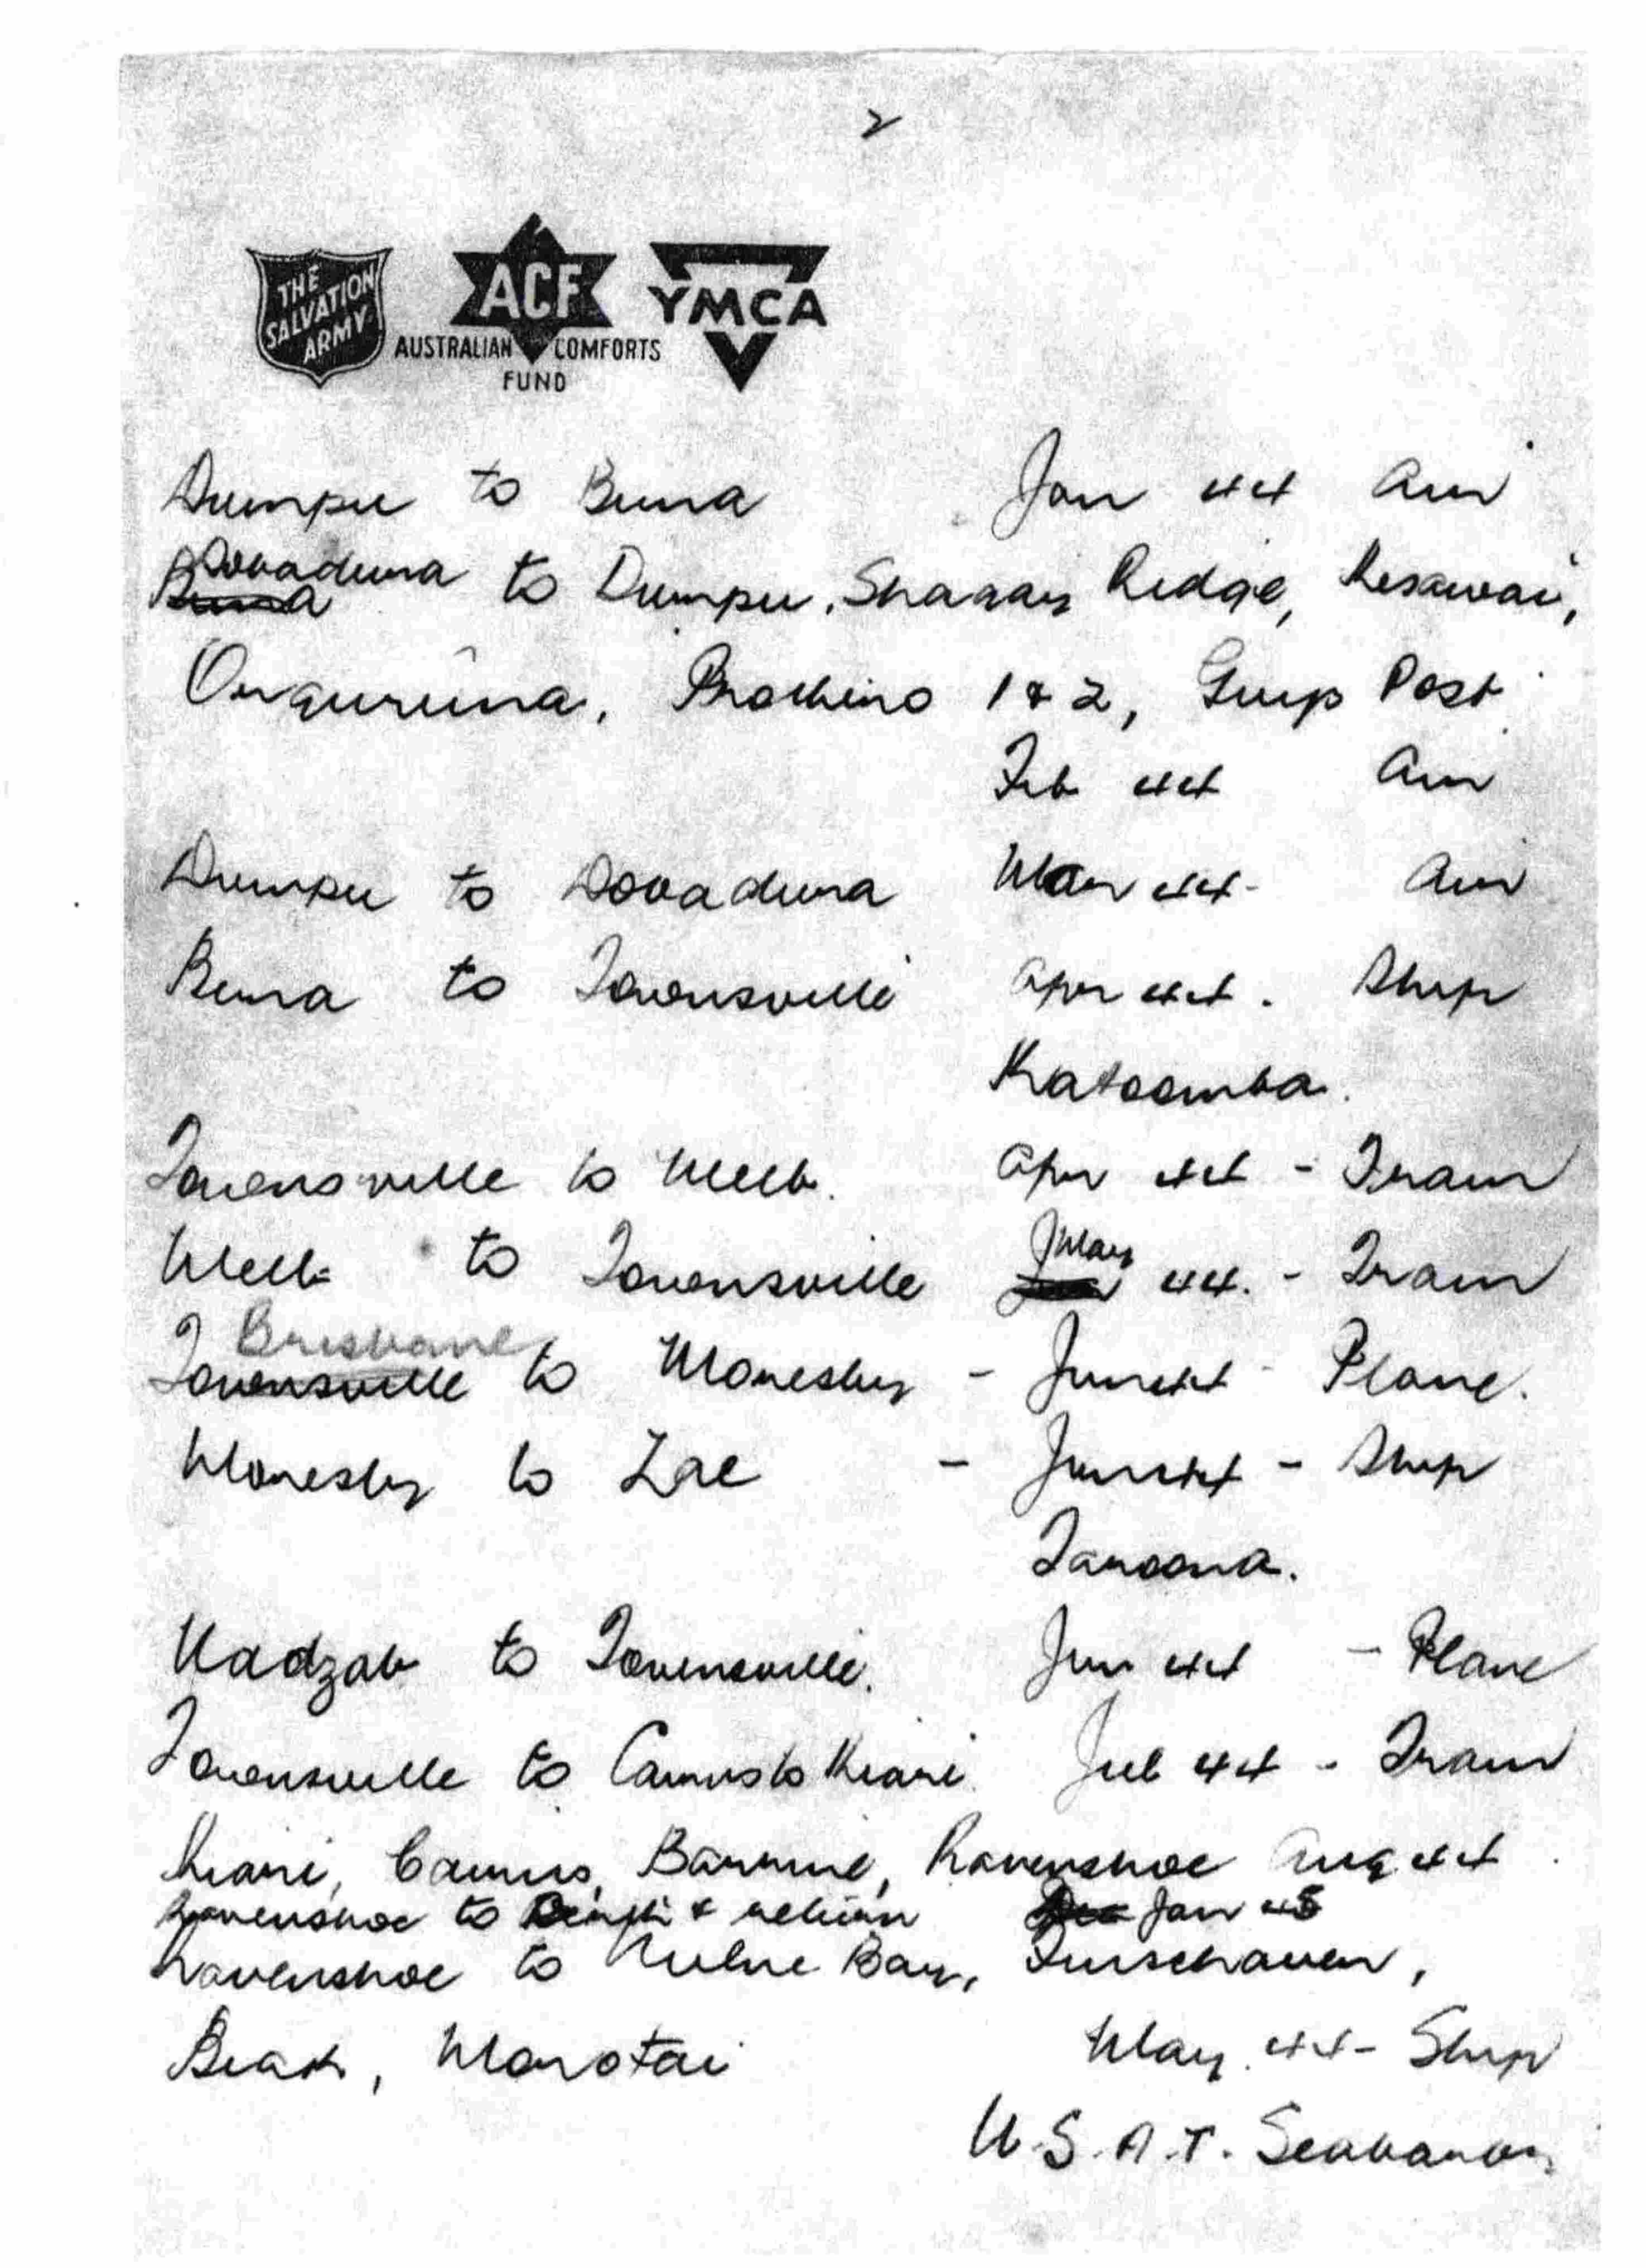 2
THE SALVATION ARMY
ACF
AUSTRALIAN COMFORTS FUND
YMCA
Dumpu to Buna Jan 44 Air
Buna Dobadura to Dumpu, Shaggy Ridge, Kesawai,
Onguruna, Prothero 1 & 2, Guy's Post
Feb 44 Air
Dumpu to Dobadura Mar 44 - Air
Buna to Townsville Apr 44. Ship
Katoomba.
Townsville to Melb. Apr 44 - Train
Melb to Townsville May 44. - Train
Townsville Brisbane to Moresby - Jun 44 - Plane.
Moresby to Lae - Jun 44 - Ship
Taroona.
Nadzab to Townsville. Jun 44 - Plane
Townsville to Cairns to Kiari Jul 44 - Train
Kiari, Cairns, Barrine, Ravenshoe Aug 44
Ravenshoe to & return Dec Jan 45
Ravenshoe to Milne Bay, Finschaven,
Biak, Morotai May 44 - Ship
U.S.A.T.